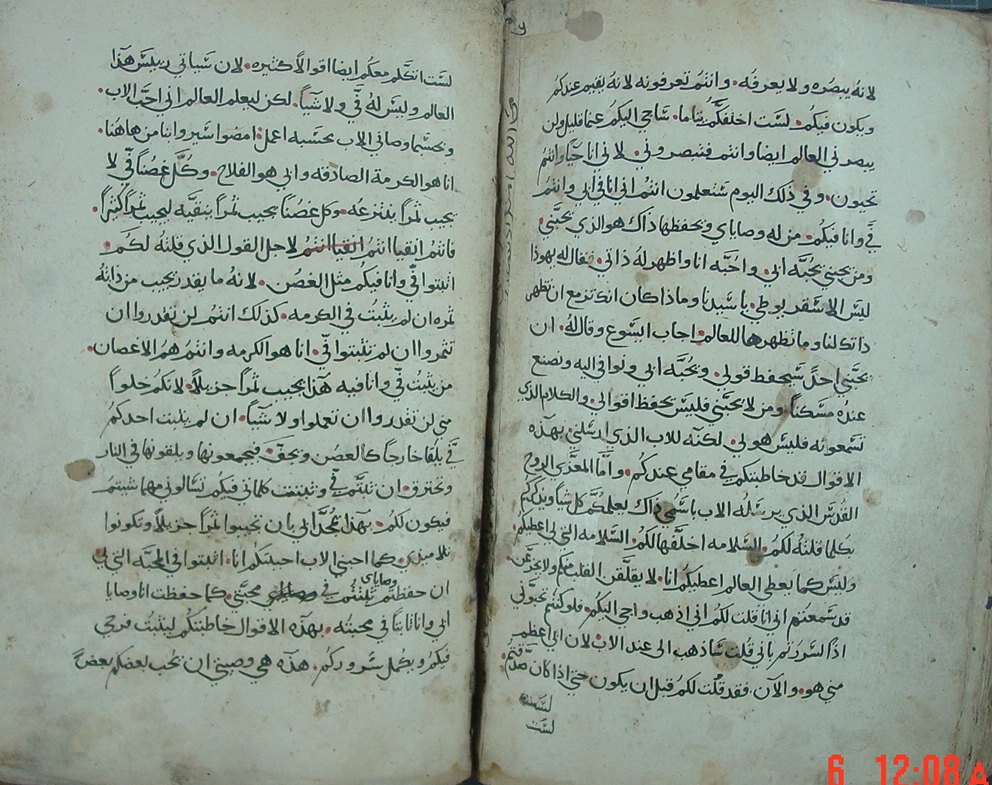 لانه يبصره ولا يعرفه. وانتم تعرفونه لانه يقيم عندكم
ويكون فيكم. لست اخلفكم يتاما. ساجي اليكم عما قليل ولن
يبصرني العالم ايضا وانتم فتبصروني. لاني انا حيا وانتم
تحيون. وفي ذلك اليوم ستعلمون انتم اني انا في ابي وانتم
في وانا فيكم. من له وصاياي وتحفظها ذاك هو الذي يحبني.
ومن يحبني يحبه ابي. وانا احبه واظهر له ذاتي. فقال له يهوذا
ليس الاسقريوطي. ياسيدنا وماذا كان انك تزمع ان تظهر
ذاتك لنا وما تظهرها للعالم. اجاب ايسوع وقال له. ان
يحبني احدا سيحفظ قولي. ويحبه ابي ونوافي اليه ونصنع
عنده مسكنا. ومن لا يحبني فليس يحفظ اقوالي. والكلام الذي
تسمعونه فليس هو لي. لكنه للاب الذي ارسلني. بهذه
الاقوال قد خاطبتكم في مقامي عندكم. واما المعزي الروح
القدس الذي يرسله الاب باسمي ذاك يعلمكم كل شيا ويذكركم
بكلما قلته لكم. السلامه اخلفها لكم. السلامه التي لي اعطيكم
وليس كما يعطي العالم اعطيكم انا. لا يقلقن القلب منكم ولا يجزعن.
قد سمعتم اني انا قلت لكم اني اذهب واجي اليكم. فلو كنتم تحبوني
اذا لسررتم باني قلت ساذهب الى عند الاب. لان ابي اعظم
مني هو. والآن. فقد قلت لكم قبل ان يكون حتى اذا كان صدقتم
لست
لست اتكلم معكم ايضا اقوالا كثيره. لان سياتي ريس هذا
العالم وليس له في ولا شيا. لكن ليعلم العالم اني احب الاب.
وبحسبما وصاني الاب بحسبه اعمل. امضوا سيروا بنا من هاهنا.
انا هو الكرمة الصادقه وابي هو الفلاح. وكل غصنا في لا
يجيب ثمرا ينتزعه. وكل غصنا يجيب ثمرا ينقيه ليجيب ثمرا كثيرا.
فانتم انقيا انتم انقيا انتم لاجل القول الذي قلته لكم.
اثبتوا في وانا فيكم مثل الغصن. لانه ما يقدر يجيب من ذاته
ثمره ان لم يثبت في الكرمه. كذلك انتم لن تقدروا ان
تثمروا ان لم تثبتوا في. انا هو الكرمه وانتم هم الاغصان.
من يثبت في وانا فيه هذا يجيب ثمرا جزيلا. لانكم خلوا
مني لن تقدروا ان تعملوا ولا شيا. ان لم يثبت احدكم
في يلقا خارجا كالغصن ويجف. فيجمعونها ويلقونها في النار
وتحترق. ان ثبتم في وثبتت كلماتي فيكم تسالوني مهما شيتم
فيكون لكم. بهذا تمجد ابي بان تجيبوا ثمرا جزيلا وتكونوا
تلاميذي. كما احبني الاب احببتكم انا. اثبتوا في المحبه التي لي
وصاياي
ان حفظتم ثبتتم في محبتي. كما حفظت انا وصايا
ابي وانا ثابتا في محبته. بهذه الاقوال خاطبتكم ليثبت فرحي
فيكم ويكمل سروركم. هذه هي وصيتي ان يحب بعضكم بعضا
6 12:08 A